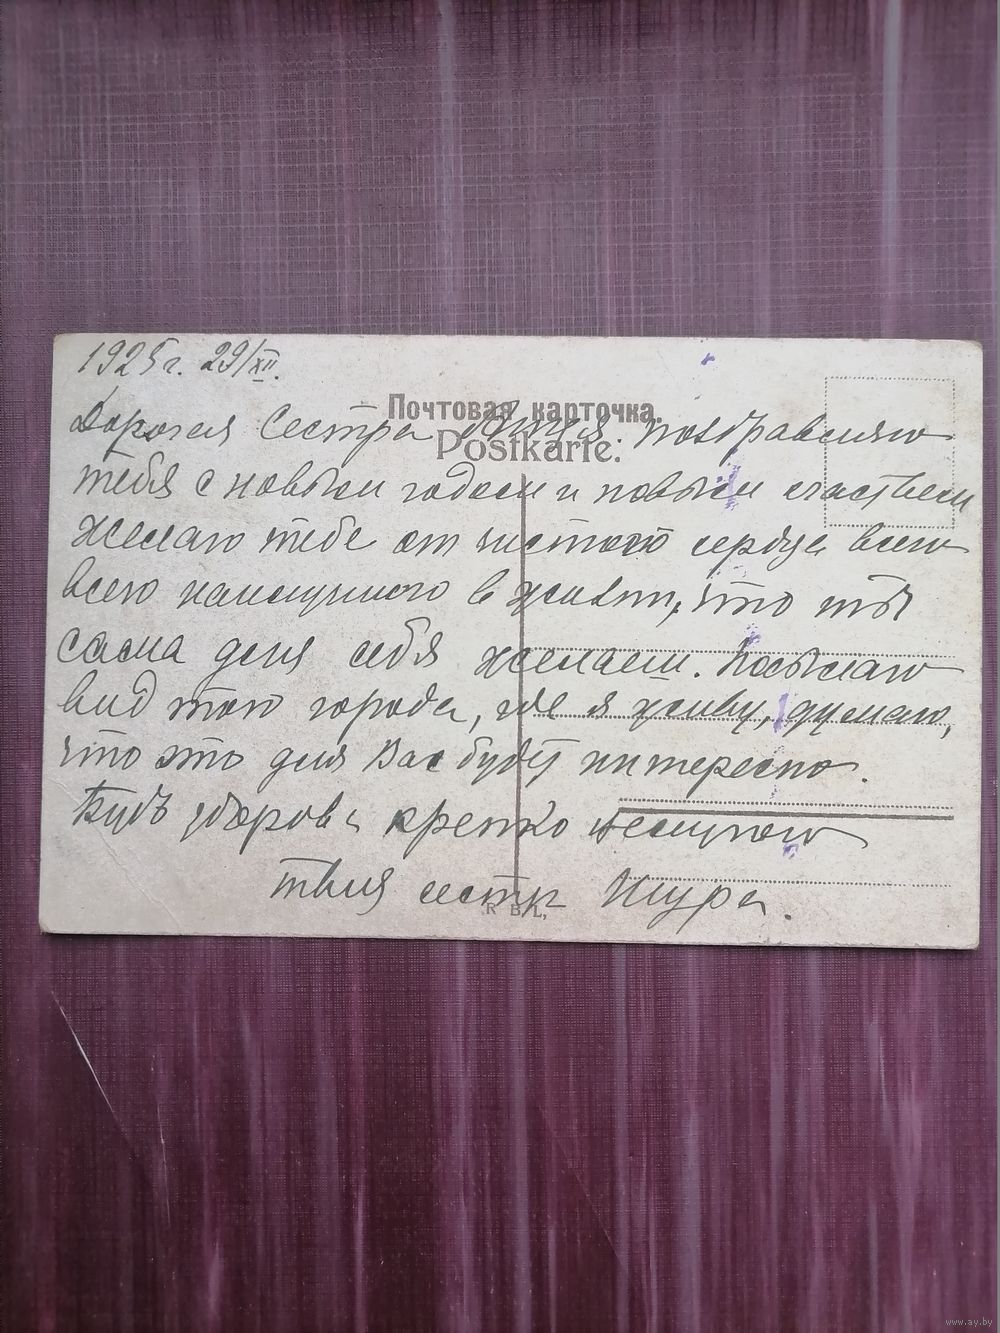 1925 г. 29/XII.
Почтовая карточка.
Postkarte.
Дорогая Сестра поздравляю
тебя с новым годом и новым счастьем
желаю тебе от чистого сердца всего
всего наилучшего в жизни, что ты
сама для себя желаеш. Посылаю
вид того города, где я живу, думаю,
что это для Вас будет интересно.
Будь здорова крепко целую
твоя сестра Шура.
R B L,
www.ay.by